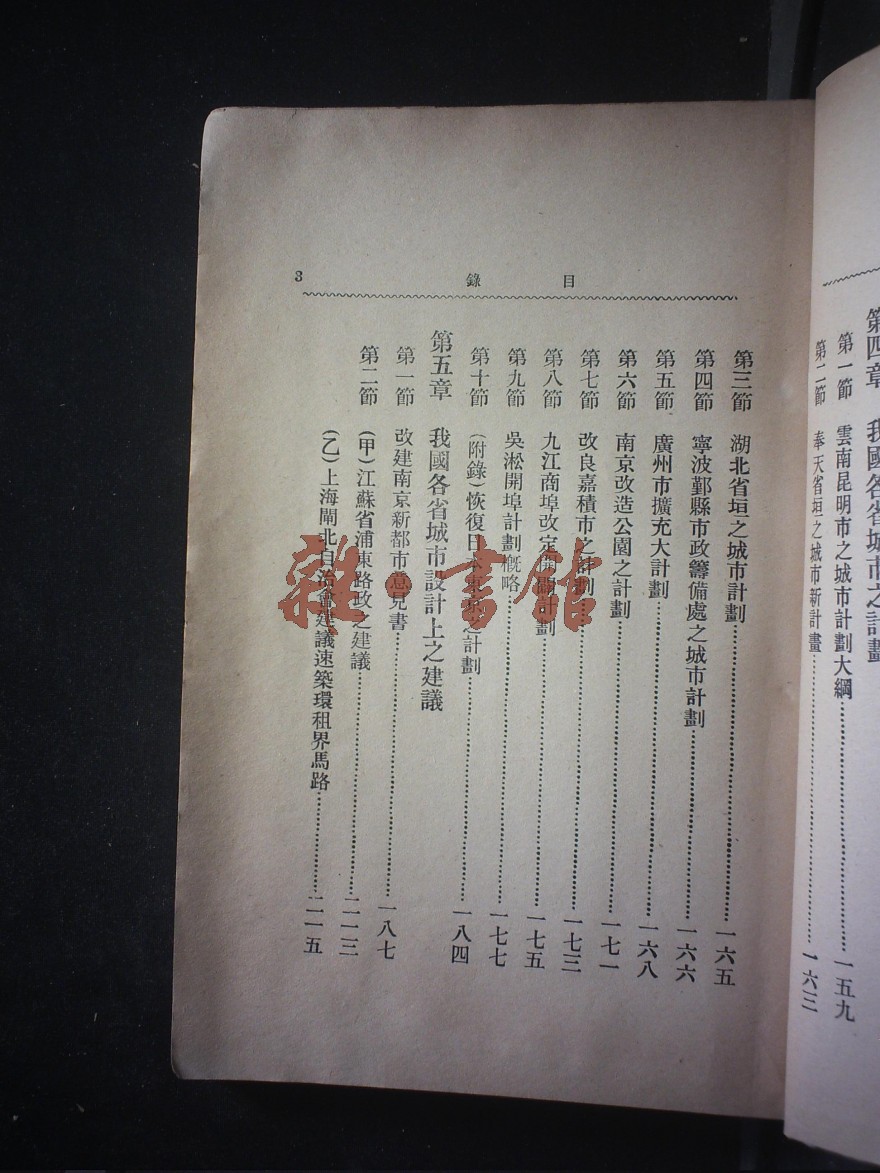 第四章　我國各省城市之計劃
第一節　雲南昆明市之城市計劃大綱……一五九
第二節　奉天省垣之城市新計畫……一六三
目錄
3
第三節　湖北省垣之城市計劃……一六五
第四節　寧波鄞縣市政籌備處之城市計劃……一六六
第五節　廣州市擴充大計劃……一六八
第六節　南京改造公園之計劃……一七一
第七節　改良嘉積市之計劃……一七三
第八節　九江商埠改定開闢計劃……一七五
第九節　吳淞開埠計劃概略……一七七
第十節　(附錄)恢復日本東京之計劃……一八四
第五章　我國各省城市設計上之建議
第一節　改建南京新都市意見書……一八七
第二節　(甲)江蘇省浦東路政之建議……二一三
(乙)上海閘北自治會建議速築環租界馬路……二一五
雜·書館